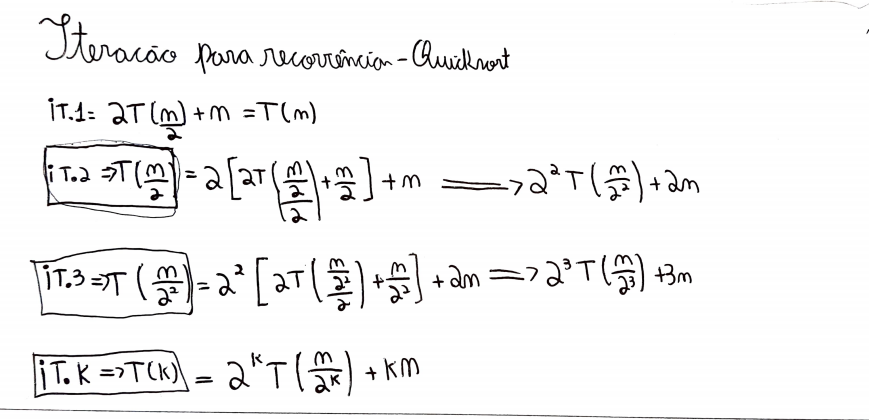 Iteração para recorrência - Quicksort
iT.1 = 2T(n/2) + n = T(n)
iT.2 => T(n/2) = 2[2T((n/2)/2) + n/2] + n => 2²T(n/2²) + 2n
iT.3 => T(n/2²) = 2²[2T((n/2²)/2) + n/2²] + 2n => 2³T(n/2³) + 3n
iT.K => T(K) = 2ᵏT(n/2ᵏ) + Kn